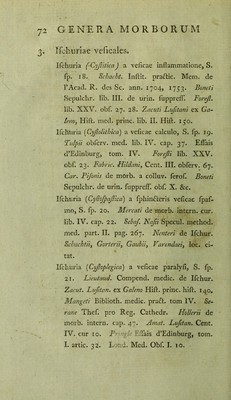 72 GENERA MORBORUM
3. Ischuriae vesicales.
Ischuria (Cystitica) a vesicae inflammatione, S.
sp. 18. Schacht. Instit. practic. Mem. de
l'Acad. R. des Sc. ann. 1704, 1753. Boneti
Sepulchr. lib. III. de urin. suppress. Forest.
lib. XXV. obs. 27. 28. Zacuti Lusitani ex Ga-
leno, Hist. med. princ. lib. II. Hist. 150.
Ischuria (Cystolithica) a vesicae calculo, S. sp. 19.
Tulpii observ. med. lib. IV. cap. 37. Essais
d'Edinburg, tom. IV. Foresti lib. XXV.
obs. 23. Fabric. Hildani, Cent. III. observ. 67.
Car. Pisonis de morb. a colluv. seros. Boneti
Sepulchr. de urin. suppress. obs. X. &c.
Ischuria (Cystospastica) a sphincteris vesicae spas-
mo, S. sp. 20. Mercati de morb. intern. cur.
lib. IV. cap. 22. Sebast. Nasii Specul. method.
med. part. II. pag. 267. Nenteri de Ischur.
Schochtii, Gorterii, Gaubii, Varendaei, loc. ci-
tat.
Ischuria (Cystoplegica) a vesicae paralysi, S. sp.
21. Lieutaud. Compend. medic. de Ischur.
Zacut. Lusitan. ex Galeno Hist. princ. hist. 140.
Mangeti Biblioth. medic. pract. tom IV. Se-
rane Thes. pro Reg. Cathedr. Hollerii de
morb. intern. cap. 47. Amat. Lusitan. Cent.
IV. cur 10. Essais d'Edinburg, tom.
I. artic. 32. Lond. Med. Obs. I. 10.